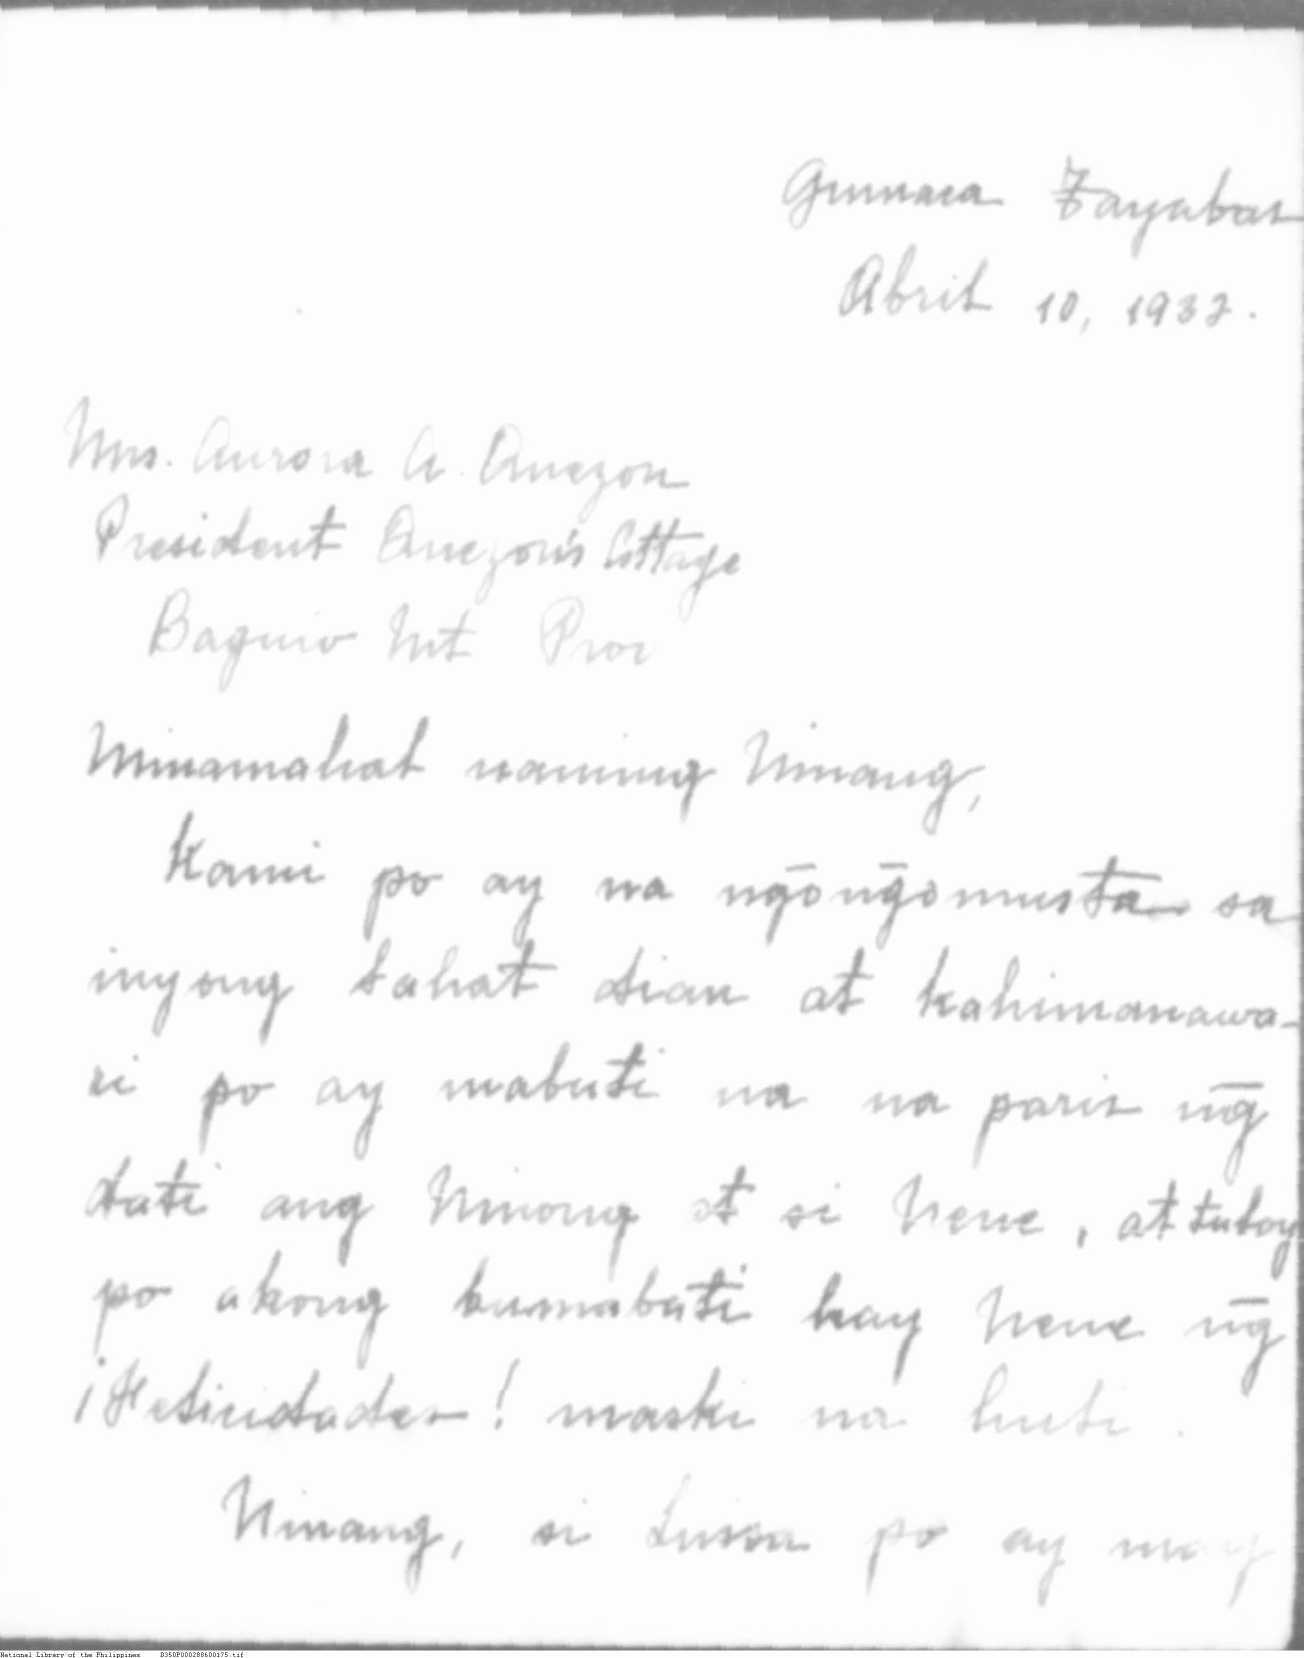 Gumaca Tayabas
Abril 10, 1932.
Mrs. Aurora A. Quezon
President Quezon's Cottage
Baguio Mt Prov
Minamahal naming Ninang,
Kami po ay na ngōngōmusta sa
inyong lahat dian at kahimanawa-
ri po ay mabuti na na paris ng̃
dati ang Ninong at si Nene, at tuloy
po akong bumabati kay Nene ng̃
¡Felicidades! maski na huli.
Ninang, si Luisa po ay may
National Library of the Philippines D350P000288600175.tif